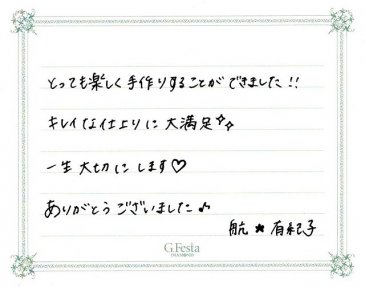 とっても楽しく手作りすることができました!!
キレイな仕上りに大満足✧✧
一生大切にします♡
ありがとうございました♪
航★有紀子
G.Festa
DIAMOND